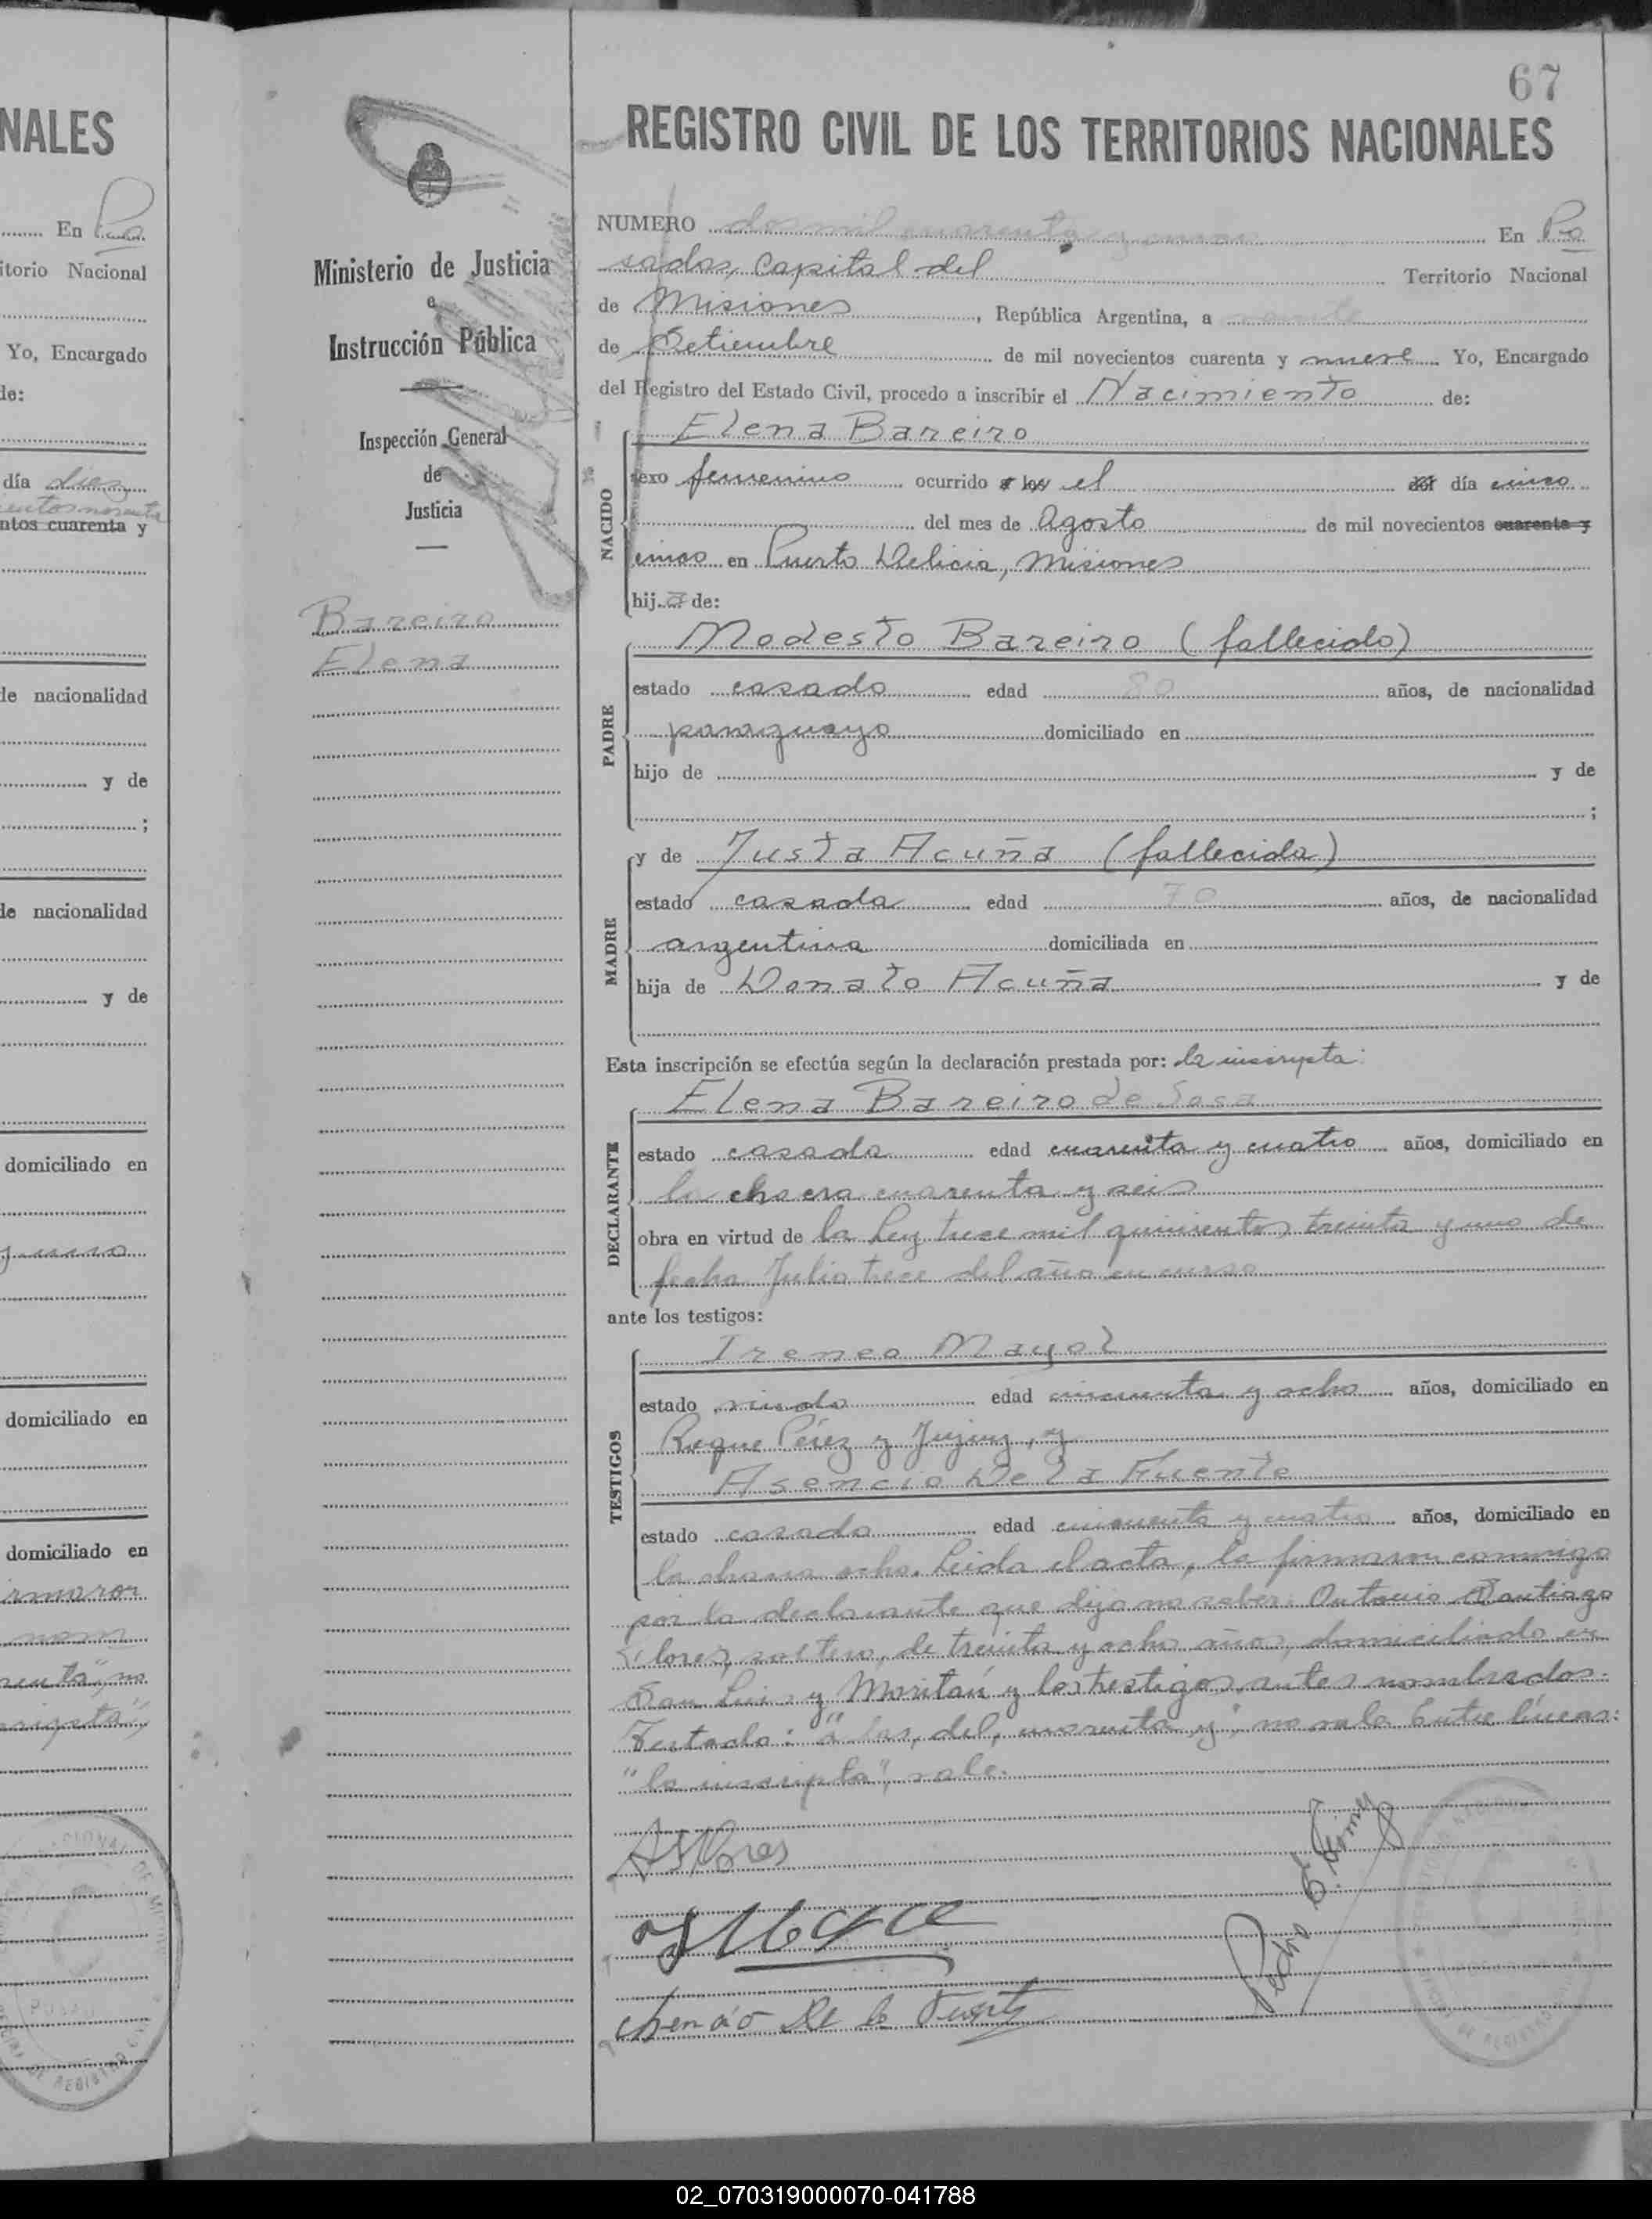 NALES
En Po
itorio Nacional
Yo, Encargado
de:
día diez
ntos cuarenta y
de nacionalidad
y de
;
de nacionalidad
y de
domiciliado en
domiciliado en
domiciliado en
Ministerio de Justicia
e
Instrucción Pública
Inspección General
de
Justicia
Bareiro
Elena
67
REGISTRO CIVIL DE LOS TERRITORIOS NACIONALES
NUMERO dos mil cuarenta y En Po
sadas, Capital del Territorio Nacional
de Misiones, República Argentina, a
de Setiembre de mil novecientos cuarenta y nueve Yo, Encargado
del Registro del Estado Civil, procedo a inscribir el Nacimiento de:
Elena Bareiro
NACIDO
sexo femenino ocurrido a las el del día cinco
del mes de Agosto de mil novecientos cuarenta y
cinco en Puerto Delicia, Misiones
hija de:
Modesto Bareiro (fallecido)
PADRE
estado casado edad 80 años, de nacionalidad
paraguayo domiciliado en
hijo de y de
;
y de Justa Acuña (fallecida)
MADRE
estado casada edad 70 años, de nacionalidad
argentina domiciliada en
hija de Donato Acuña y de
Esta inscripción se efectúa según la declaración prestada por: la inscripta:
Elena Bareiro de Sosa
DECLARANTE
estado casada edad cuarenta y cuatro años, domiciliado en
la chacra cuarenta y seis
obra en virtud de la Ley trece mil quinientos treinta y uno de
fecha Julio trece del año en curso
ante los testigos:
Ireneo Mayol
TESTIGOS
estado viudo edad cincuenta y ocho años, domiciliado en
Roque Pérez y Jujuy, y
Asencio De la Fuente
estado casado edad cincuenta y cuatro años, domiciliado en
la chacra ocho. Leida el acta, la firmaron conmigo
por la declarante que dijo no saber: Antonio Santiago
Flores, soltero, de treinta y ocho años, domiciliado en
San Luis y Moritán y los testigos antes nombrados.
Testado: "a las, del, cuarenta y", no vale. Entre líneas:
"la inscripta", vale.
ASFlores
De la Fuente
Pedro
02_070319000070-041788